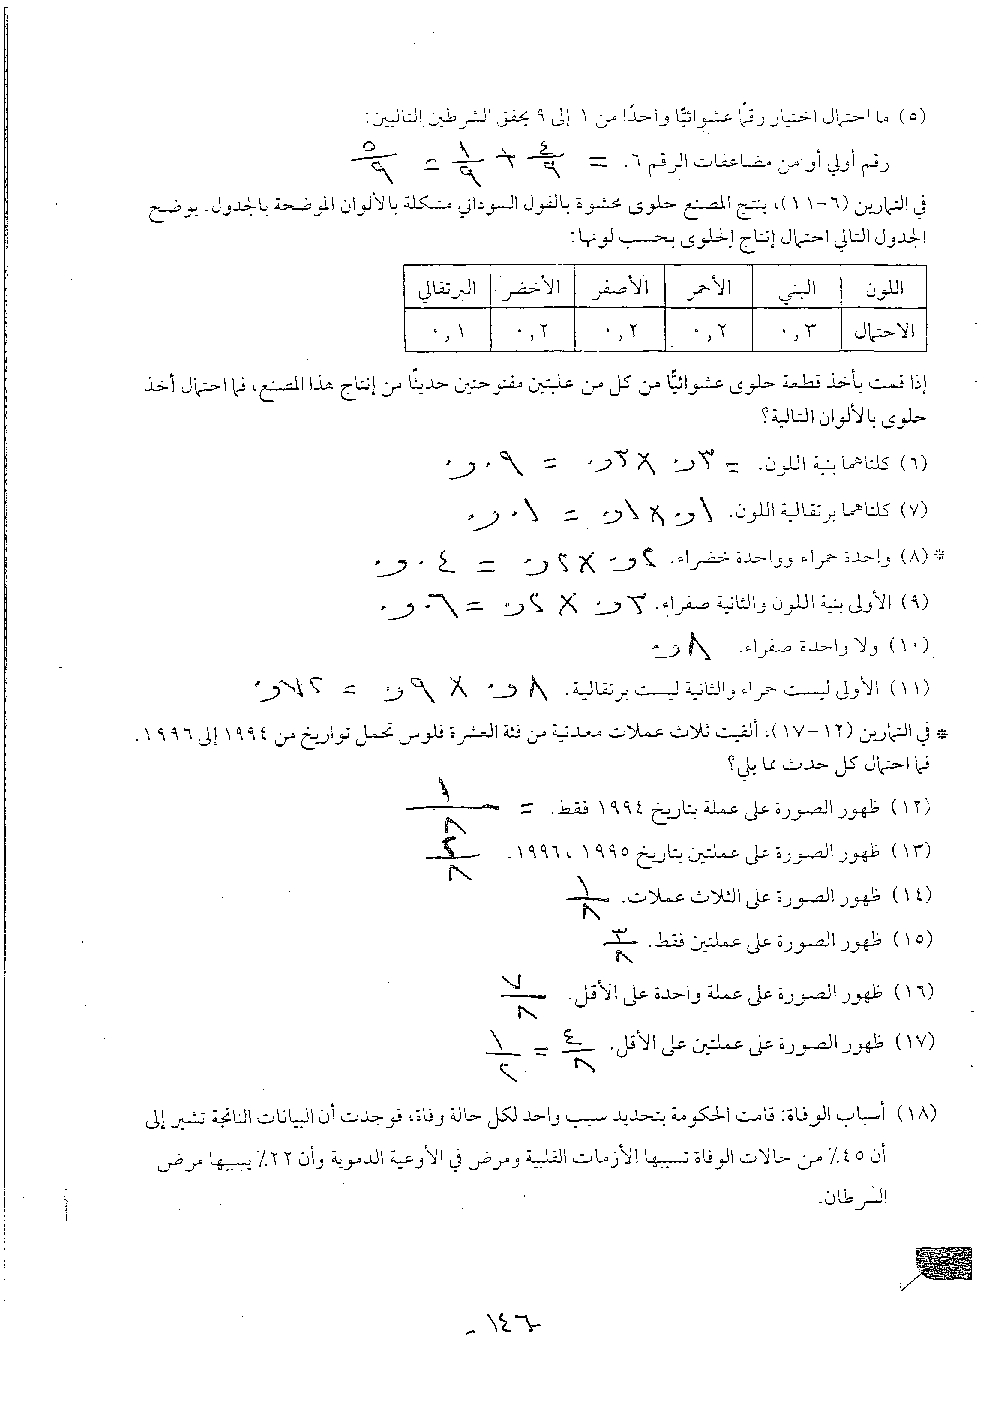 (٥) ما احتمال اختيار رقمًا عشوائيًّا واحدًا من ١ إلى ٩ يحقق الشرطين التاليين:
رقم أولي أو من مضاعفات الرقم ٦. = ٤/٩ + ١/٩ = ٥/٩
في التمارين (٦-١١)، ينتج المصنع حلوى محشوة بالفول السوداني متشكلة بالألوان الموضحة بالجدول. يوضح
الجدول التالي احتمال إنتاج الحلوى بحسب لونها:
اللون البني الأحمر الأصفر الأخضر البرتقالي
الاحتمال ٠,٣ ٠,٢ ٠,٢ ٠,٢ ٠,١
إذا قمت بأخذ قطعة حلوى عشوائيًّا من كل من علبتين مفتوحتين حديثًا من إنتاج هذا المصنع، فما احتمال أخذ
حلوى بالألوان التالية؟
(٦) كلتاهما بنية اللون. = ٠,٣ × ٠,٣ = ٠,٠٩
(٧) كلتاهما برتقالية اللون. ٠,١ × ٠,١ = ٠,٠١
* (٨) واحدة حمراء وواحدة خضراء. ٠,٢ × ٠,٢ = ٠,٠٤
(٩) الأولى بنية اللون والثانية صفراء. ٠,٣ × ٠,٢ = ٠,٠٦
(١٠) ولا واحدة صفراء. ٠,٨
(١١) الأولى ليست حمراء والثانية ليست برتقالية. ٠,٨ × ٠,٩ = ٠,٧٢
* في التمارين (١٢-١٧)، ألقيت ثلاث عملات معدنية من فئة العشرة فلوس تحمل تواريخ من ١٩٩٤ إلى ١٩٩٦.
فما احتمال كل حدث مما يلي؟
(١٢) ظهور الصورة على عملة بتاريخ ١٩٩٤ فقط. = ١/٨
(١٣) ظهور الصورة على عملتين بتاريخ ١٩٩٥، ١٩٩٦.
(١٤) ظهور الصورة على الثلاث عملات. ١/٨
(١٥) ظهور الصورة على عملتين فقط. ٣/٨
(١٦) ظهور الصورة على عملة واحدة على الأقل. ٧/٨
(١٧) ظهور الصورة على عملتين على الأقل. ٤/٨ = ١/٢
(١٨) أسباب الوفاة: قامت الحكومة بتحديد سبب واحد لكل حالة وفاة، فوجدت أن البيانات الناتجة تشير إلى
أن ٤٥٪ من حالات الوفاة تسببها الأزمات القلبية ومرض في الأوعية الدموية وأن ٢٢٪ يسببها مرض
السرطان.
- ١٤٦ -